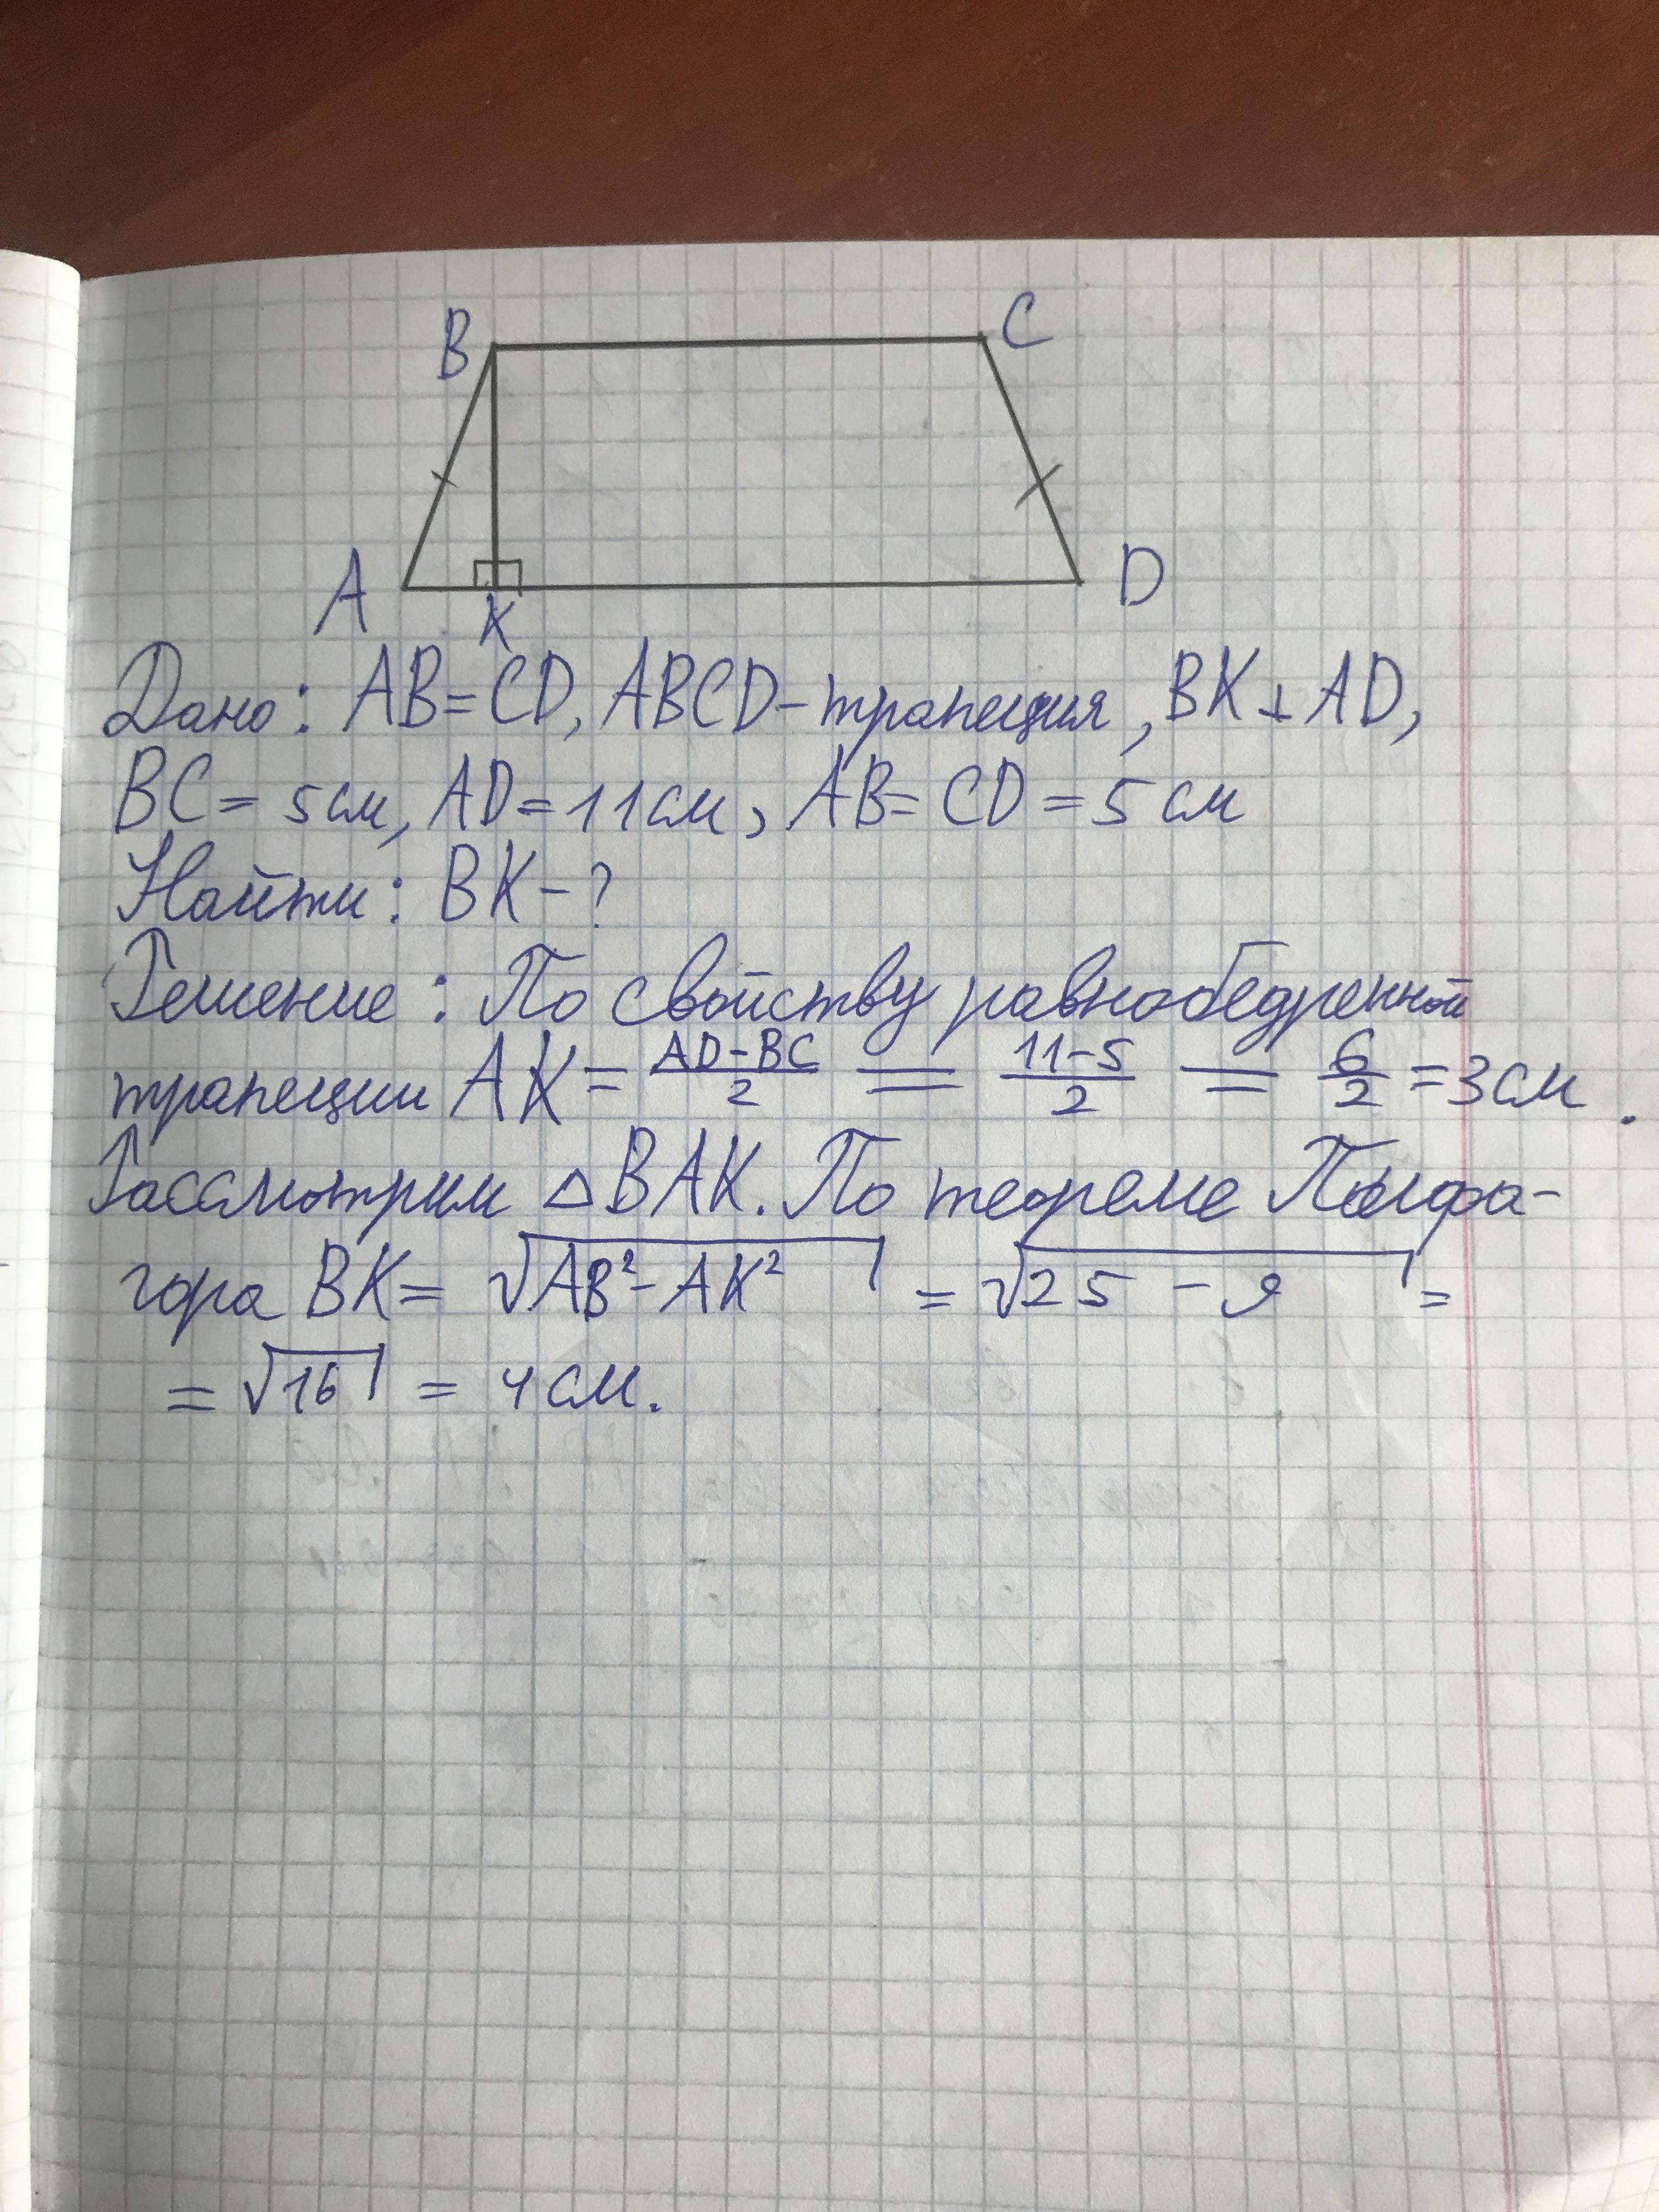 B C
A K D
Дано: AB=CD, ABCD-трапеция, BK⊥AD,
BC= 5см, AD=11см, AB= CD=5см
Найти: BK-?
Решение: По свойству равнобедренной
трапеции AK= (AD-BC)/2 = (11-5)/2 = 6/2 =3см.
Рассмотрим △BAK. По теореме Пифа-
гора BK= √AB²-AK² = √25-9 =
= √16 = 4см.